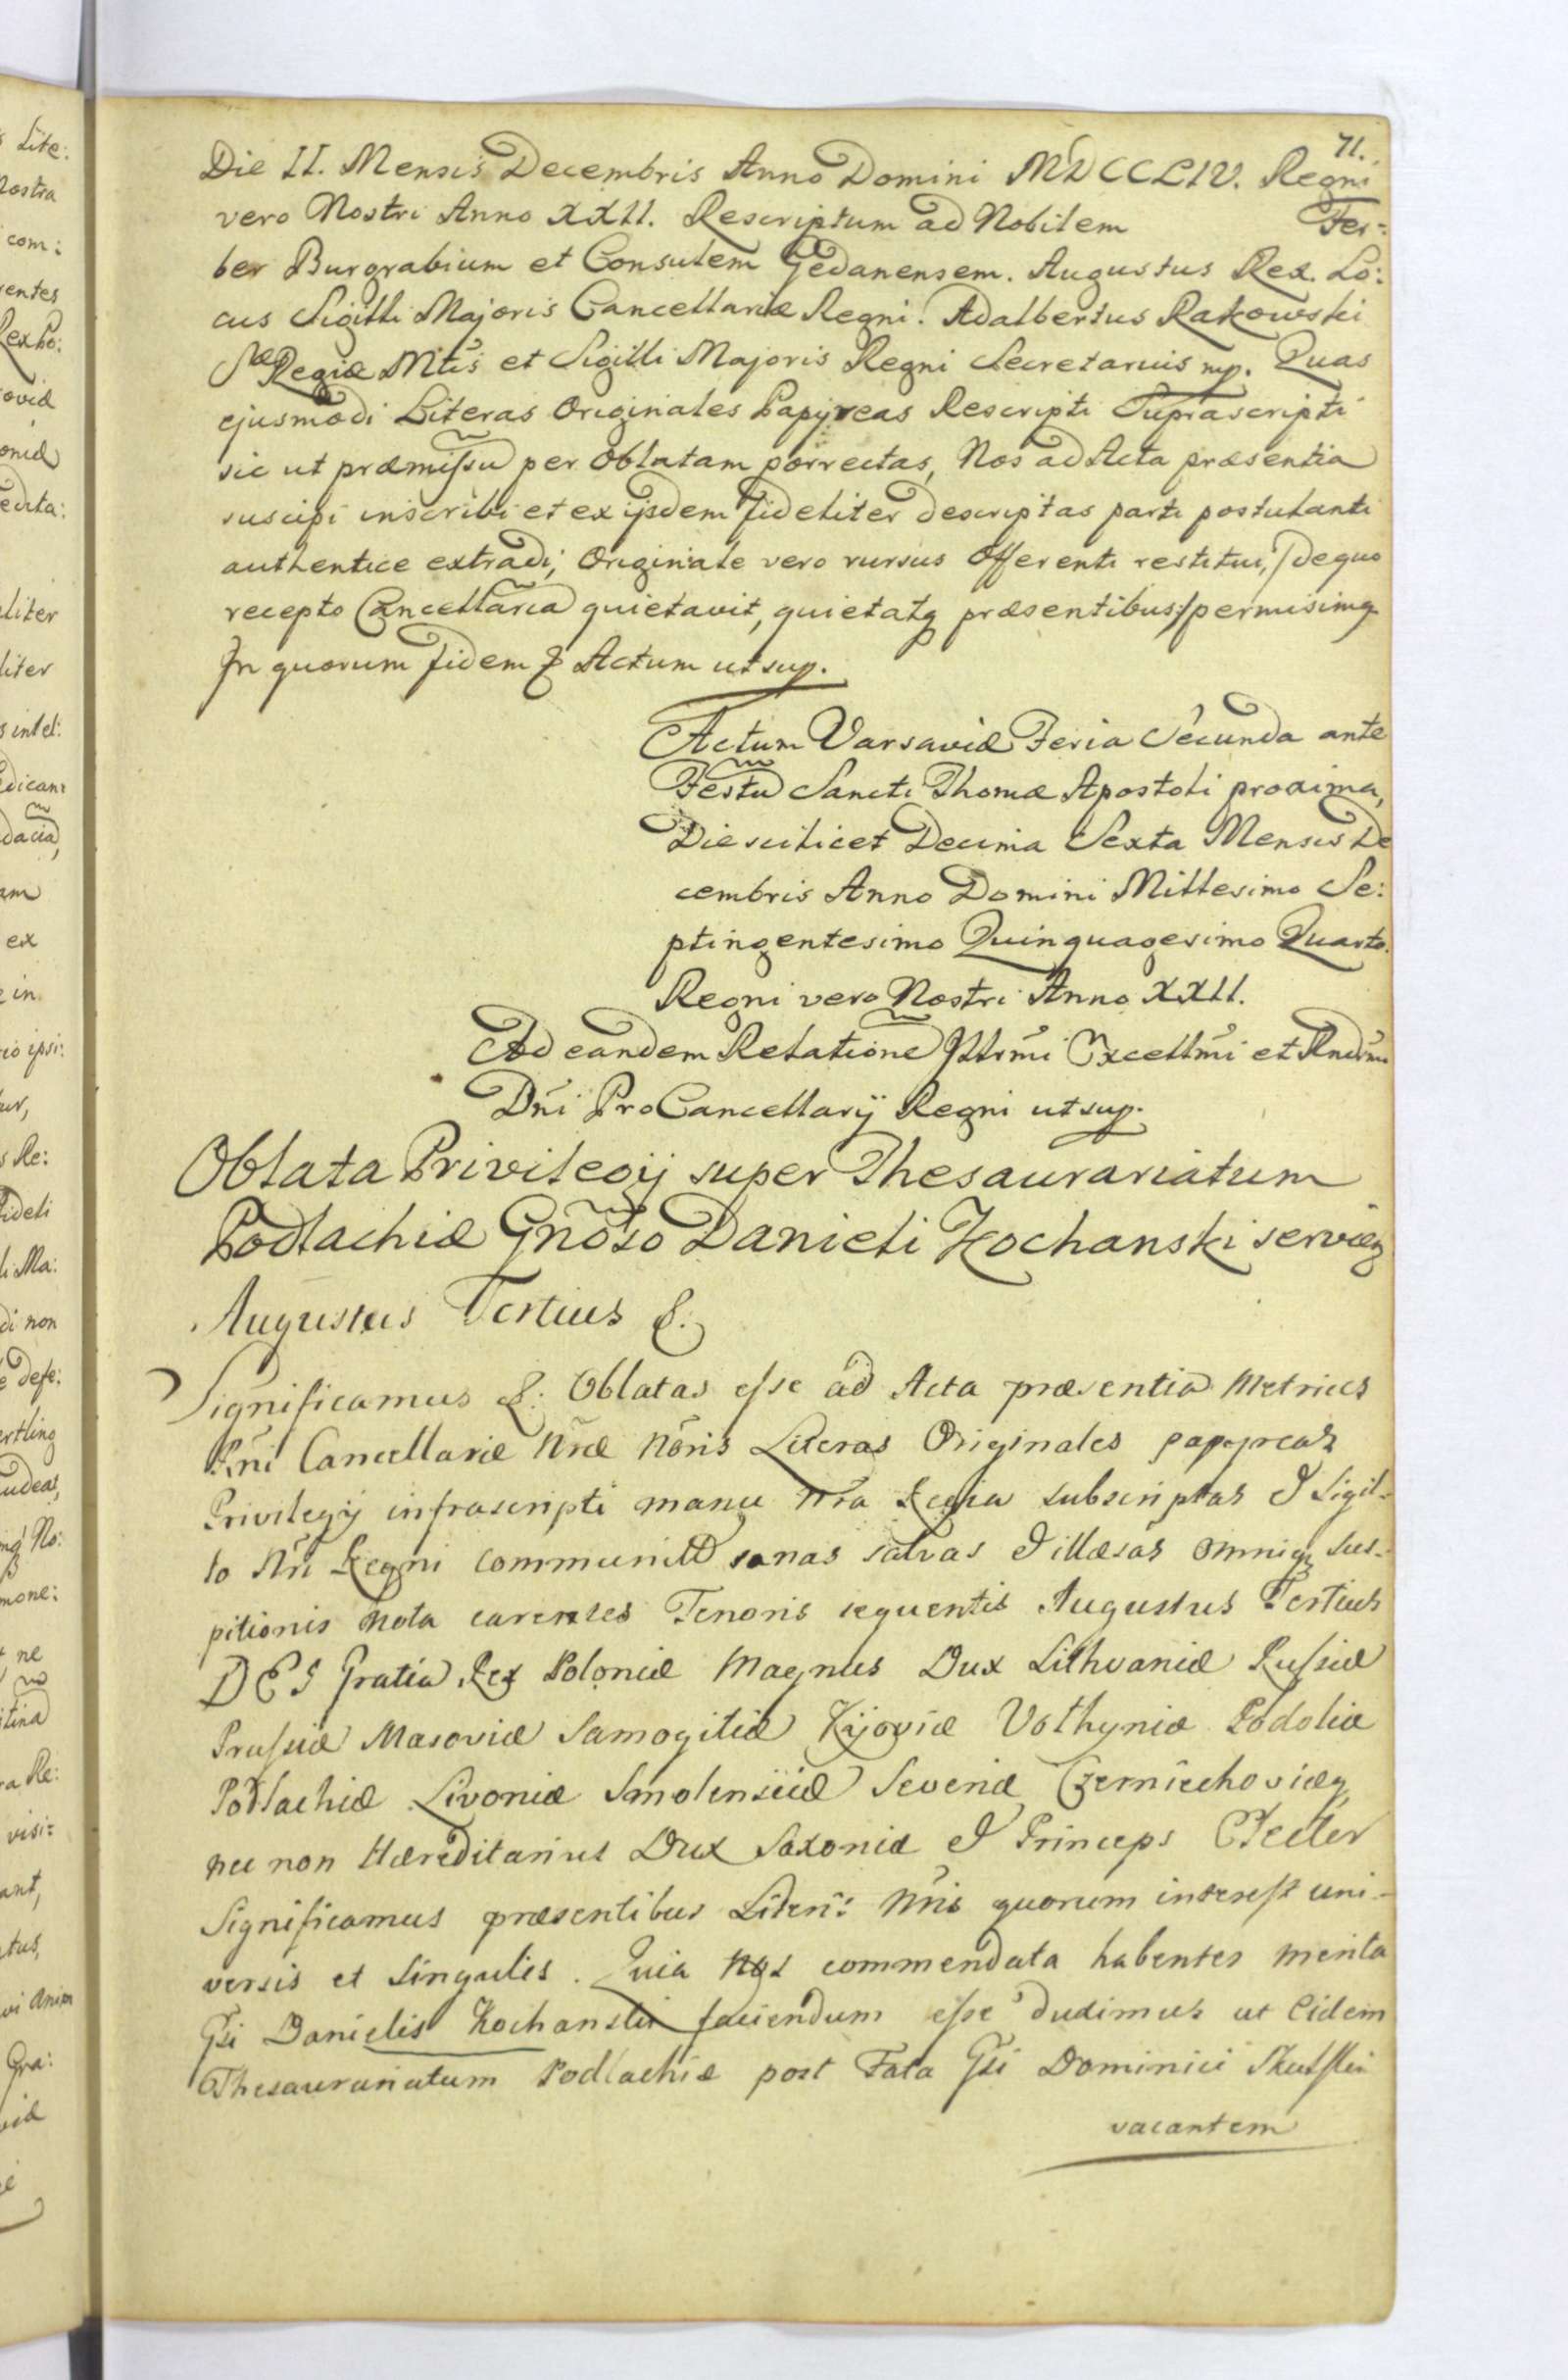 71.
Die II. Mensis Decembris Anno Domini MDCCLIV. Regni
vero Nostri Anno XXII. Rescriptum ad Nobilem Fer:
ber Burgrabium et Consulem Gedanensem. Augustus Rex. Lo:
cus Sigilli Majoris Cancellariæ Regni. Adalbertus Rakowski
Sæ Regiæ Mtis et Sigilli Majoris Regni Secretarius mp. Quas
ejusmodi Literas Originales Papyreas Rescripti Suprascripti
sic ut præmissũ per Oblatam porrectas, Nos ad Acta præsentia
suscipi inscribi et ex ijsdem fideliter descriptas parti postulanti
authentice extradi, Originale vero rursus Offerenti restitui, /de quo
recepto Cancellaria quietavit, quietatq præsentibus:/ permisimq
In quorum fidem & Actum ut sup.
Actum Varsaviæ Feria Secunda ante
Festũ Sancti Thomæ Apostoli proxima,
Die scilicet Decima Sexta Mensis De
cembris Anno Domini Millesimo Se:
ptingentesimo Quinquagesimo Quarto.
Regni vero Nostri Anno XXII.
Ad eandem Relationẽ Illrmi Excellmi et Rndmi
Dni ProCancellarij Regni ut sup.
Oblata Privilegij super Thesaurariatum
Podlachiæ Gnõso Danieli Kochanski serviẽs
Augustus Tertius &.
Significamus &. Oblatas esse ad Acta præsentia Metrices
Rni Cancellariæ Nræ Noris Literas Originales papyreas
Privilegij infrascripti manu Nra Regia subscriptas & Sigil-
lo Nri Regni communitas sanas salvas & illæsas omniq sus-
pitionis nota carentes Tenoris sequentis Augustus Tertius
DEI Gratia Rex Poloniæ Magnus Dux Lithvaniæ Russiæ
Prussiæ Masoviæ Samogitiæ Kijoviæ Volhyniæ Podoliæ
Podlachiæ Livoniæ Smolensciæ Severiæ Czerniechoviæq
nec non Hæreditarius Dux Saxoniæ & Princeps Elector
Significamus præsentibus Liters: Nris quorum interest uni-
versis et singulis. Quia Nos commendata habentes merita
Gsi Danielis Kochanski faciendum esse duximus ut Eidem
Thesaurariatum Podlachiæ post Fata Gsi Dominici
vacantem